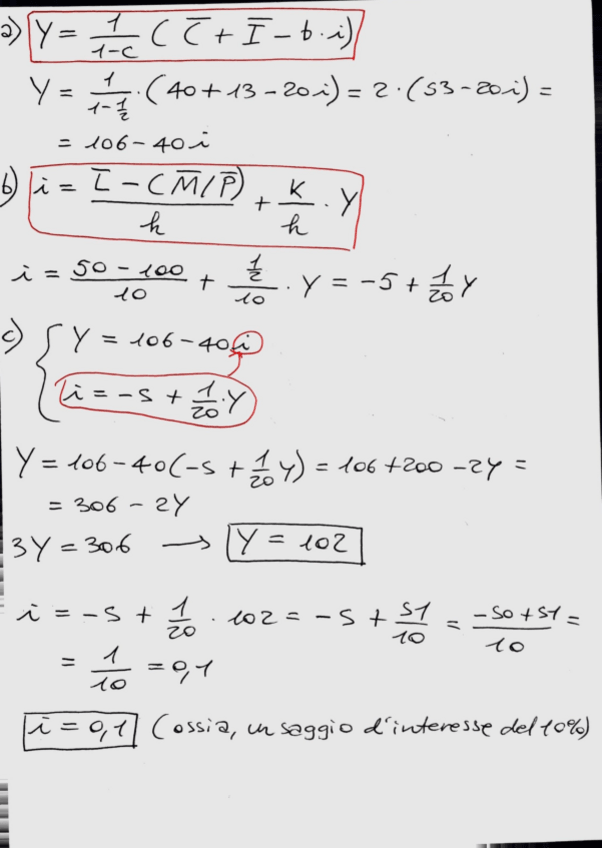 a) Y = 1/(1-c) ( C̅ + I̅ - b · i)
Y = 1/(1-1/2) · (40 + 13 - 20i) = 2 · (53 - 20i) =
= 106 - 40i
b) i = (L̅ - (M̅/P̅))/h + k/h · Y
i = (50 - 100)/10 + (1/2)/10 · Y = -5 + 1/20 Y
c) { Y = 106 - 40i
i = -5 + 1/20 · Y
Y = 106 - 40(-5 + 1/20 Y) = 106 + 200 - 2Y =
= 306 - 2Y
3Y = 306 → Y = 102
i = -5 + 1/20 · 102 = -5 + 51/10 = (-50 + 51)/10 =
= 1/10 = 0,1
i = 0,1 (ossia, un saggio d'interesse del 10%)